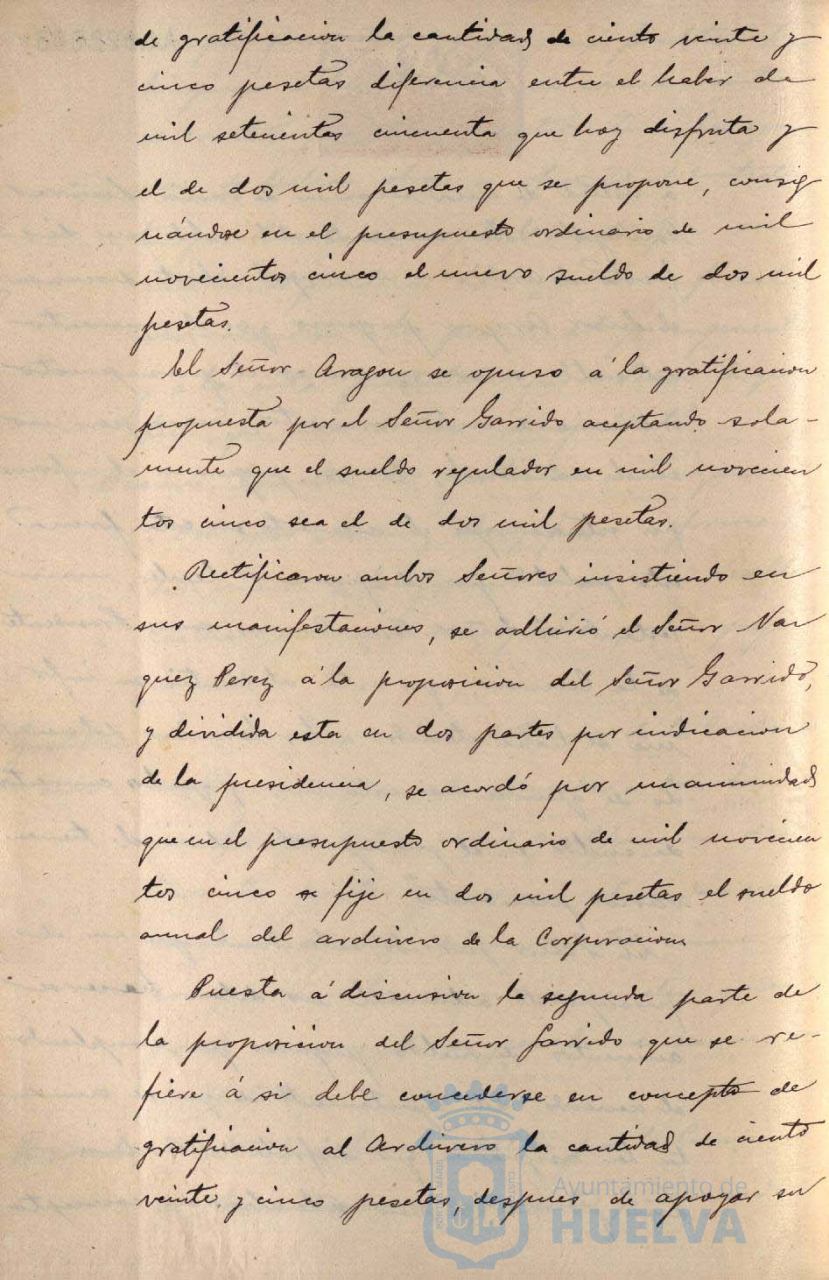 de gratificacion la cantidad de ciento veinte y
cinco pesetas diferencia entre el haber de
mil setecientas cincuenta que hoy disfruta y
el de dos mil pesetas que se propone, consig
nándose en el presupuesto ordinario de mil
novecientos cinco el nuevo sueldo de dos mil
pesetas.
El Señor Aragon se opuso á la gratificacion
propuesta por el Señor Garrido aceptando sola-
mente que el sueldo regulador en mil novecien
tos cinco sea el de dos mil pesetas.
Rectificaron ambos Señores insistiendo en
sus manifestaciones, se adhirió el Señor Vaz
quez Perez á la proposicion del Señor Garrido,
y dividida esta en dos partes por indicacion
de la presidencia, se acordó por unanimidad
que en el presupuesto ordinario de mil novecien
tos cinco se fije en dos mil pesetas el sueldo
anual del archivero de la Corporacion
Puesta á discusion la segunda parte de
la proposicion del Señor Garrido que se re-
fiere á si debe concederse en concepto de
gratificacion al Archivero la cantidad de ciento
veinte y cinco pesetas, despues de apoyar su
Ayuntamiento de
HUELVA